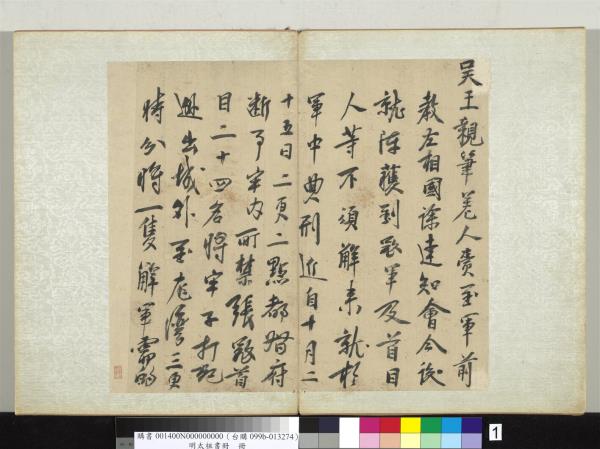 吳王親筆差人賫至軍前
教左相國徐達知會今後
就陣獲到寇軍及首目
人等不須解來就於
軍中典刑近自十月二
十五日二更二點都督府
斷事牢內所禁張寇首
目二十四名將牢子打死
越出城外至龍灣三更
時分將一隻解軍需的
購書 001400N000000000 (台購 099b-013274)
明太祖書冊 冊
1